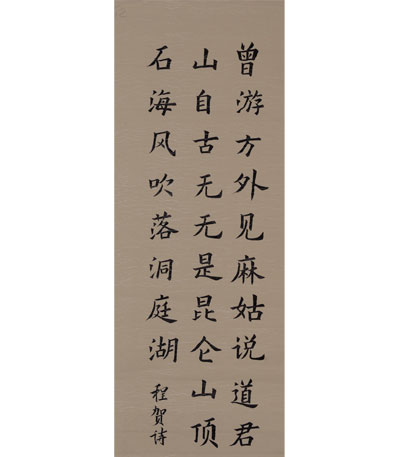 曾游方外见麻姑说道君
山自古无无是昆仑山顶
石海风吹落洞庭湖
程贺诗